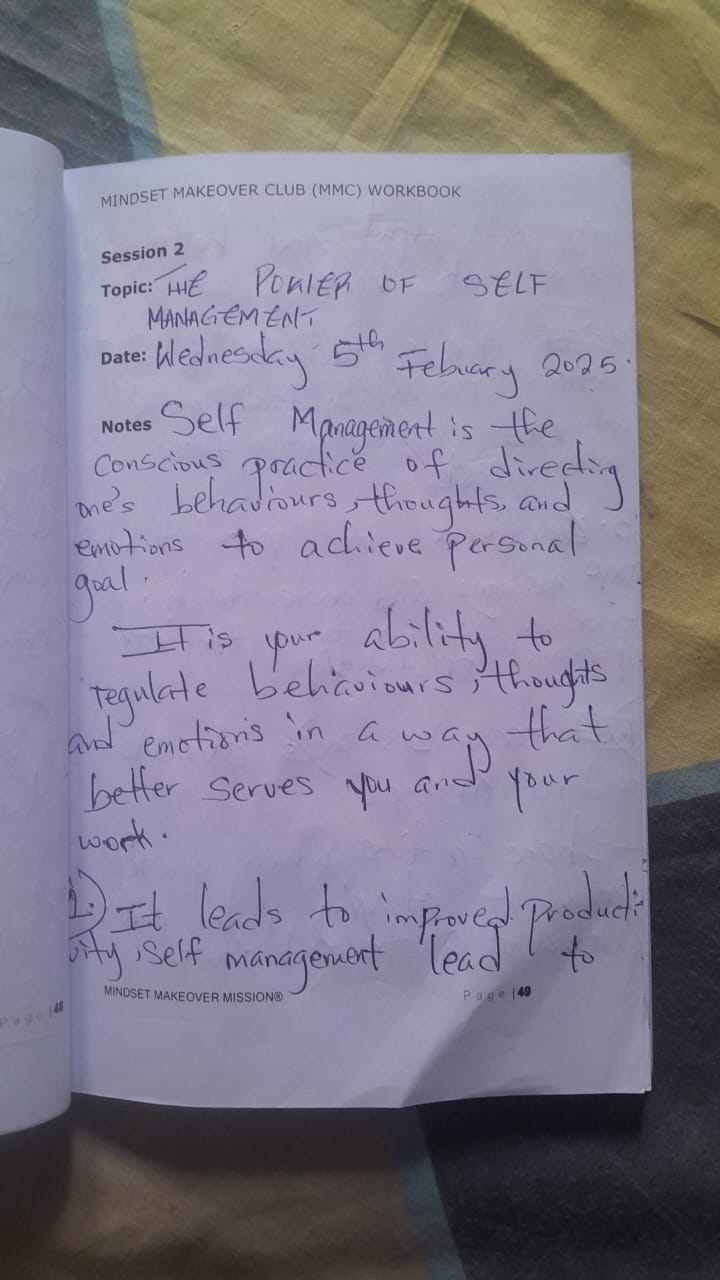 MINDSET MAKEOVER CLUB (MMC) WORKBOOK
Session 2
Topic: THE POWER OF SELF
MANAGEMENT
Date: Wednesday 5th Febuary 2025.
Notes Self Management is the
conscious practice of directing
one's behaviours, thoughts, and
emotions to achieve personal
goal.
It is your ability to
regulate behaviours, thoughts
and emotions in a way that
better serves you and your
work.
1.) It leads to improved Producti-
vity, Self management lead to
MINDSET MAKEOVER MISSION® Page |49
Page |48